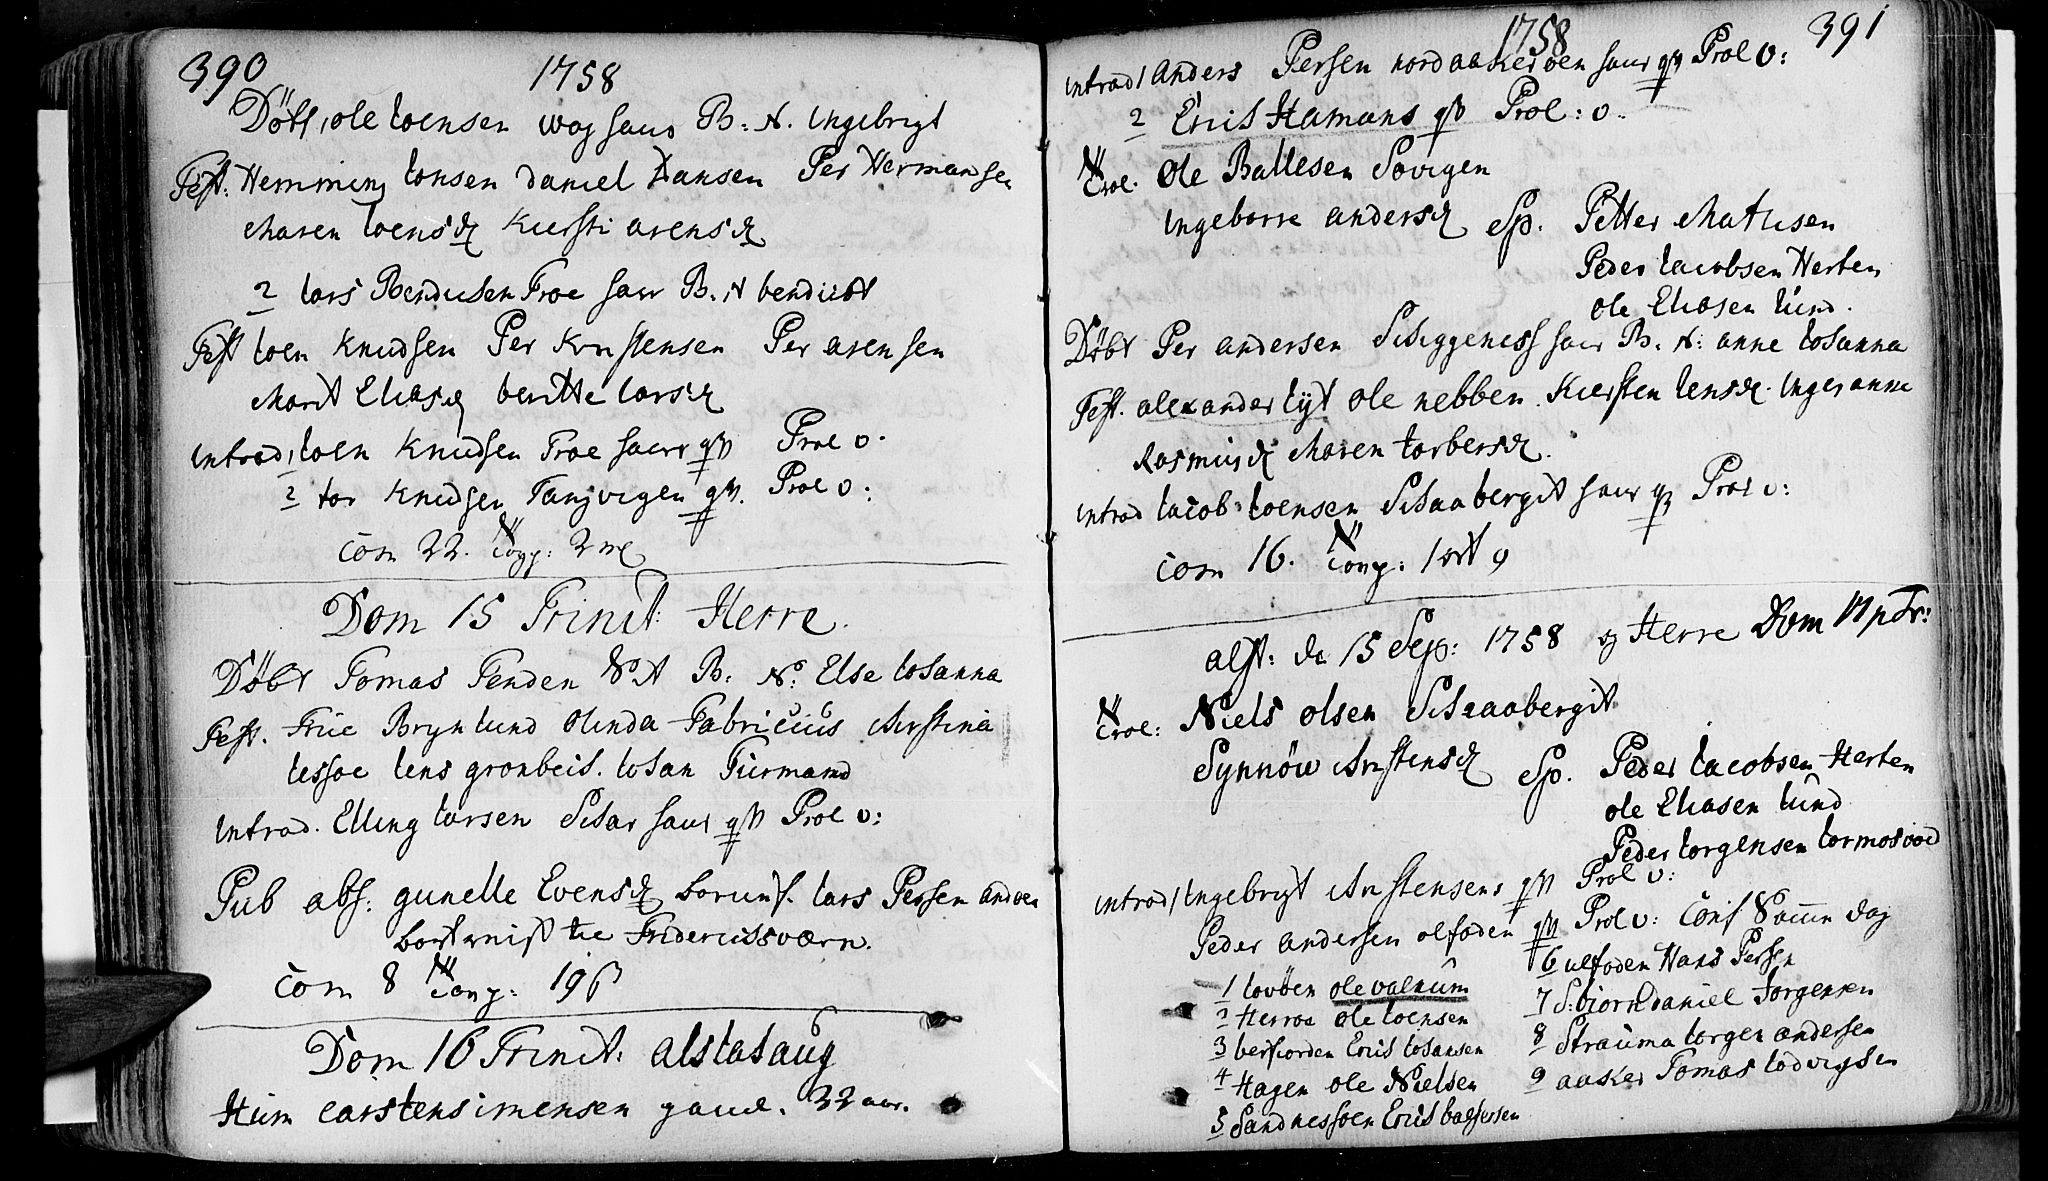 390 1758
Döbt, ole Joensen waagsaur B: N. Ingebrigt
Test: Hemming Jonsen Daniel Hansen Per Hermansen
Maren Joensd Kiersti arensd
2 Lars Bendixsen Troe saur B. N bendict
Test Joen Knudsen Per Kristensen Per arensen
Marit Eliasd beritte Larsd
Introd, Joen Knudsen Troe saur qv Prol v.
2 Jor Knudsen Tangvigen qv. Prol v:
Com 22.
Dom 15 Trinit: Herre.
Döbt Tomas Tenden B: N: Else Josanna
Test. Frue Brynlund olinda Fabricius Kirstina
Jessoe Jens gronbeis. Josan Furmand
Introd. Elling Larsen saur qv Prol v:
Pub abs: gunelle Evensd Lars Persen andoen
bortrmist til Fridericsværn.
Com 8
Dom 16 Trinit: alstahaug
Hum Carsten Simensen 32 aar.
1758 391
Introd 1 Anders Persen nordaakerven saur qv Prol v:
2 Eric Hamans qv Prol: v.
Trol. Ole Baltesen Sövigen
Ingeborre andersd Sp. Petter Matisen
Peder Jacobsen Herten
ole Eliasen Lund.
Döbt Per andersen Scheggeness saur B. N: anne Josanna
Test. alexander Lyt ole nebben. Kiersten Jensd. Inger anne
Rasmusd Maren Torbersd.
Introd Jacob Joensen Schaabergit saur qv Prol v:
Com 16. Cong: 1 ort 9
alst: d. 15 Sep: 1758 og Herre Dom 17 p Tr:
Trol: Niels olsen Schaabergit
Synnöw Kristensd Sp. Peder Jacobsen Herten
ole Eliasen Lund
Peder Jorgensen Tormosvod
Introd 1 Ingebrigt Kristensens qv Prol v:
Peder andersen olfoden qv Prol v: Conf Samme dag
1 Lovöen ole valnum
2 Herroe ole Joensen
3 berfiorden Eric Josansen
4 Hagen ole Nielsen
5 Sandnessoen Eric baltsersen
6 ulfoden Hans Persen
7 S:biorn Daniel Jorgensen
8 Strauma Jorgen andersen
9 aaker Tomas Lodvigsen